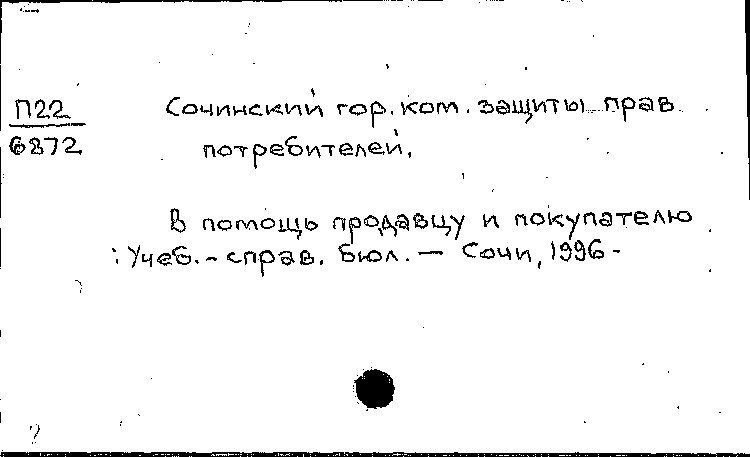 П22
6872
Сочинский гор. ком. защиты прав
потребителей.
В помощь продавцу и покупателю
: Учеб. - справ. бюл. — Сочи, 1996 -